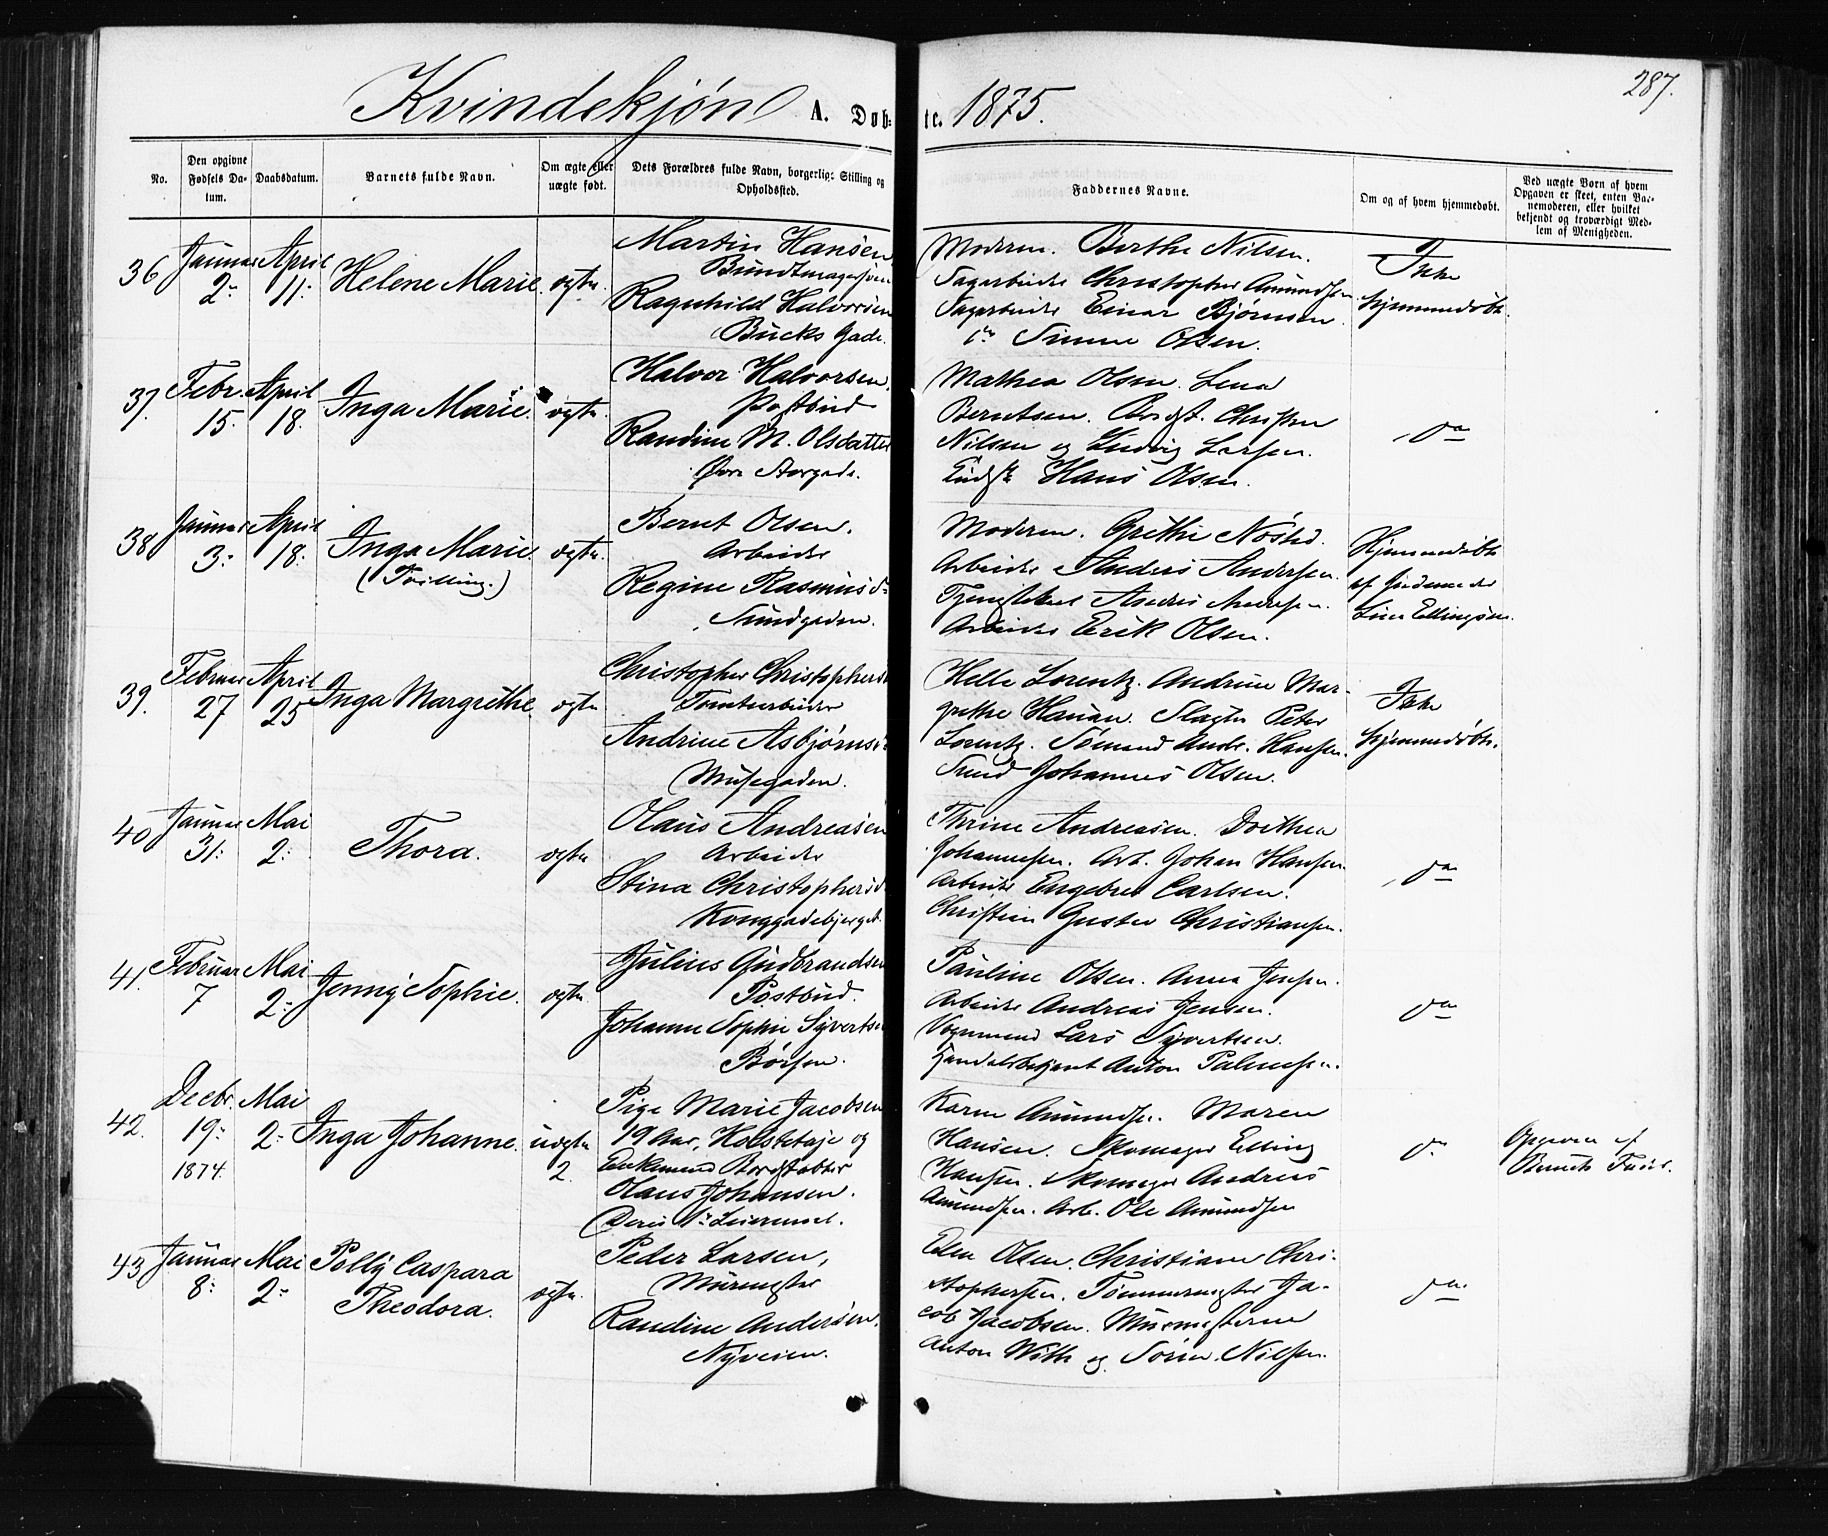 Kvindekjøn A. Døb-te. 1875. 287.
No.
Den opgivne Fødsels Da-tum.
Daabsdatum.
Barnets fulde Navn.
Om ægte eller uægte født.
Dets Forældres fulde Navn, borgerlige Stilling og Opholdssted.
Faddernes Navne.
Om og af hvem hjemmedøbt.
Ved uægte Børn af hvem Opgaven er skeet, enten Bar-nemoderen, eller hvilket bekjendt og troværdigt Med-lem af Menigheden.
36 Januar 2: April 11: Helene Marie ægte.
Martin Hansen
Bundtmagersvend
Ragnhild Halvorsen
Bucks Gade.
Moderen. Berthe Nilsen.
Sagarbeider Christopher Amundsen
Sagarbeider Einar Bjørnsen
Simen Olsen.
Ikke
hjemmedøbt.
37. Febr. 15. April 18. Inga Marie. ægte.
Halvor Halvorsen,
Postbud
Randine M. Olsdatter
Øvre Torvgade.
Mathea Olsen. Lena
Berntsen. Christen
Nilsen og Ludvig Larsen.
Hans Olsen.
da
38 Januar 3: April 18: Inga Marie (Tvilling.) ægte.
Bernt Olsen.
Arbeider
Regine Rasmusd:
Sundgaden.
Moderen. Grethe
Arbeider Anders Andersen.
Tjenestekarl Andersen.
Arbeider Erik Olsen.
Hjemmedøbt
af Jordemoder
Line Ellingsen.
39. Februar 27 April 25 Inga Margrethe. ægte
Christopher Christophers
Tomtearbeider
Andrine Asbjørns
Musegaden.
Helle Lorentz. Andrine Mar-
grethe Hansen. Slagter Peter
Lorentz. Sømand Andr. Hansen.
Johannes Olsen.
Ikke
hjemmedøbt.
40 Januar 31: Mai 2: Thora. ægte
Olaus Andreasen
Arbeider
Stina Christophersd
Konggadebjerget.
Thrine Andreasen. Dorthea
Johannesen. Arb. Johan Hansen.
Arbeider Engebret Carlsen.
Christian Gustav Christiansen.
da
41. Februar 7 Mai 2: Jenny Sophie. ægte.
Julius Gudbrandsen
Postbud.
Johanne Sophie Syvertsen
Børsen.
Pauline Olsen. Anna Jensen.
Arbeider Andreas Jensen.
Vognmand Lars Syvertsen.
Handelsbetjent Anton Palmesen.
da
42. Decbr. 19: 1874. Mai 2: Inga Johanne. uægte 2.
Pige Marie Jacobsen
19 Aar, og
Enkemand
Olaus Johansen.
Deres 1: Leiermaal.
Karen Amundsen. Maren
Hansen. Skomager Elling
Hansen. Skomager Andreas
Amundsen. Arb. Ole Amundsen
da
Opgaven af
43 Januar 8: Mai 2: Polly Caspara Theodora. ægte.
Peder Larsen,
Murmester
Randine Andersen,
Nyveien.
Elen Olsen. Christiane Chri-
stophersen. Tømmermester Ja-
cob Jacobsen. Murmesterne
Anton With og Søren Nilsen.
da